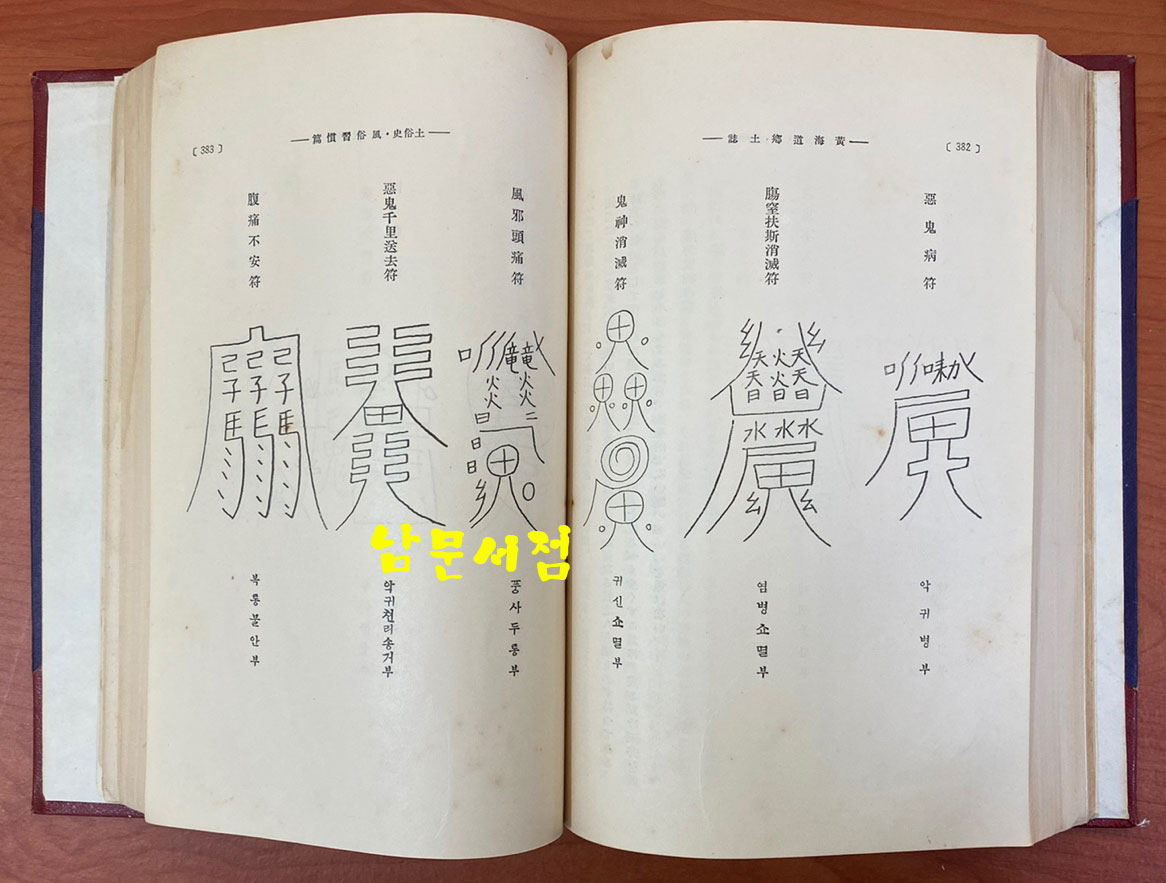 〔 382 〕
黃海道鄕土誌
惡鬼病符
악귀병부
膓窒扶斯消滅符
염병쇼멸부
鬼神消滅符
귀신쇼멸부
土俗史・風俗習慣篇
〔 383 〕
風邪頭痛符
풍사두통부
惡鬼千里送去符
악귀천리송거부
腹痛不安符
복통불안부
남문서점